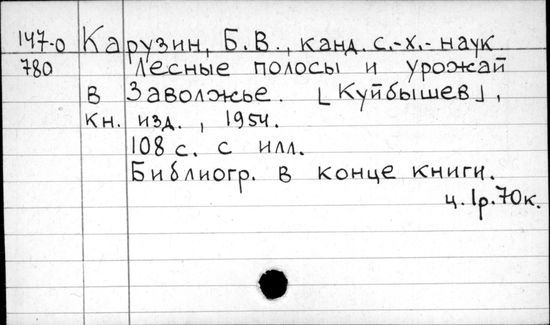 147-0 Карузин, Б.В., канд. с.-х.- наук
780 Лесные полосы и урожай
в Заволжье. [Куйбышев],
кн. изд., 1954.
108 с. с илл.
Библиогр. в конце книги.
ц. 1р. 70к.